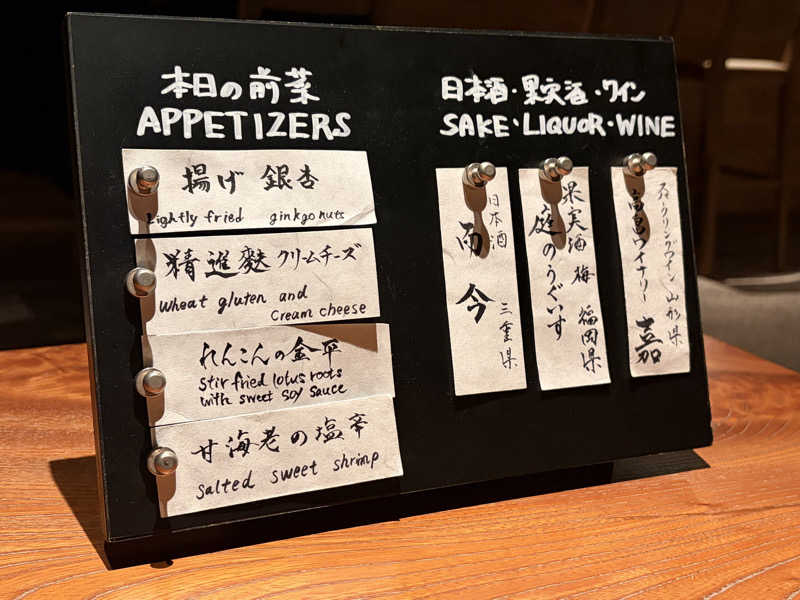 本日の前菜
APPETIZERS
揚げ 銀杏
Lightly fried ginkgo nuts
精進麩 クリームチーズ
Wheat gluten and
Cream cheese
れんこんの金平
stir fried lotus roots
with sweet soy sauce
甘海老の塩辛
salted sweet shrimp
日本酒・果実酒・ワイン
SAKE・LIQUOR・WINE
日本酒
而今
三重県
果実酒 梅 福岡県
庭のうぐいす
スパークリングワイン 山形県
高畠ワイナリー 嘉